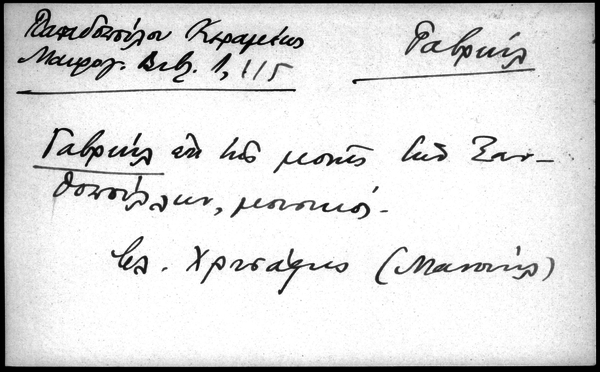 Παπαδοπούλου Κεραμέως
Μαυρογ. Βιβ. 1, 115
Γαβριήλ
Γαβριήλ ἐκ τῆς μονῆς τῶν Ξαν–
θοπούλων, μουσικός.
βλ. Χρυσάφης (Μανουήλ)